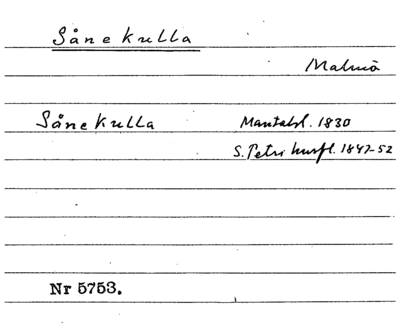 Sånekulla
Malmö
Sånekulla Mantalsl. 1830
S. Petri husfl. 1847-52
Nr 5753.